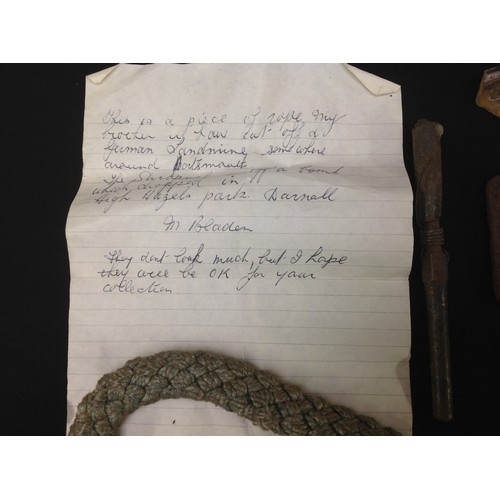 This is a piece of rope my
brother in law cut off a
German Landmine, somewhere
around Portsmouth
The is off a bomb
which dropped in
High Hazels park. Darnall
M Bladen
They dont look much, but I hope
they will be OK for your
collection